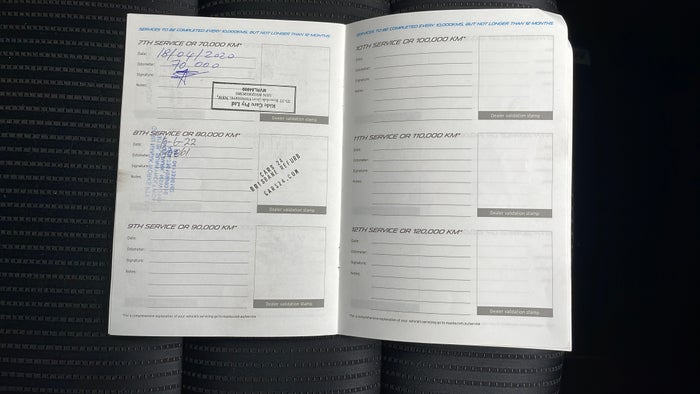 SERVICES TO BE COMPLETED EVERY 10,000KMS, BUT NOT LONGER THAN 12 MONTHS
7TH SERVICE OR 70,000 KM*
Date: 18/04/2020
Odometer: 70 000
Signature:
Notes:
Kids Cars Pty Ltd
MVRL54999
Dealer validation stamp
8TH SERVICE OR 80,000 KM*
Date: 6-22
Odometer:
Signature:
Notes:
CARS 24
BRISBANE REFURB
CARS24.COM
Dealer validation stamp
9TH SERVICE OR 90,000 KM*
Date:
Odometer:
Signature:
Notes:
Dealer validation stamp
SERVICES TO BE COMPLETED EVERY 10,000KMS, BUT NOT LONGER THAN 12 MONTHS.
10TH SERVICE OR 100,000 KM*
Date:
Odometer:
Signature:
Notes:
Dealer validation stamp
11TH SERVICE OR 110,000 KM*
Date:
Odometer:
Signature:
Notes:
Dealer validation stamp
12TH SERVICE OR 120,000 KM*
Date:
Odometer:
Signature:
Notes:
Dealer validation stamp